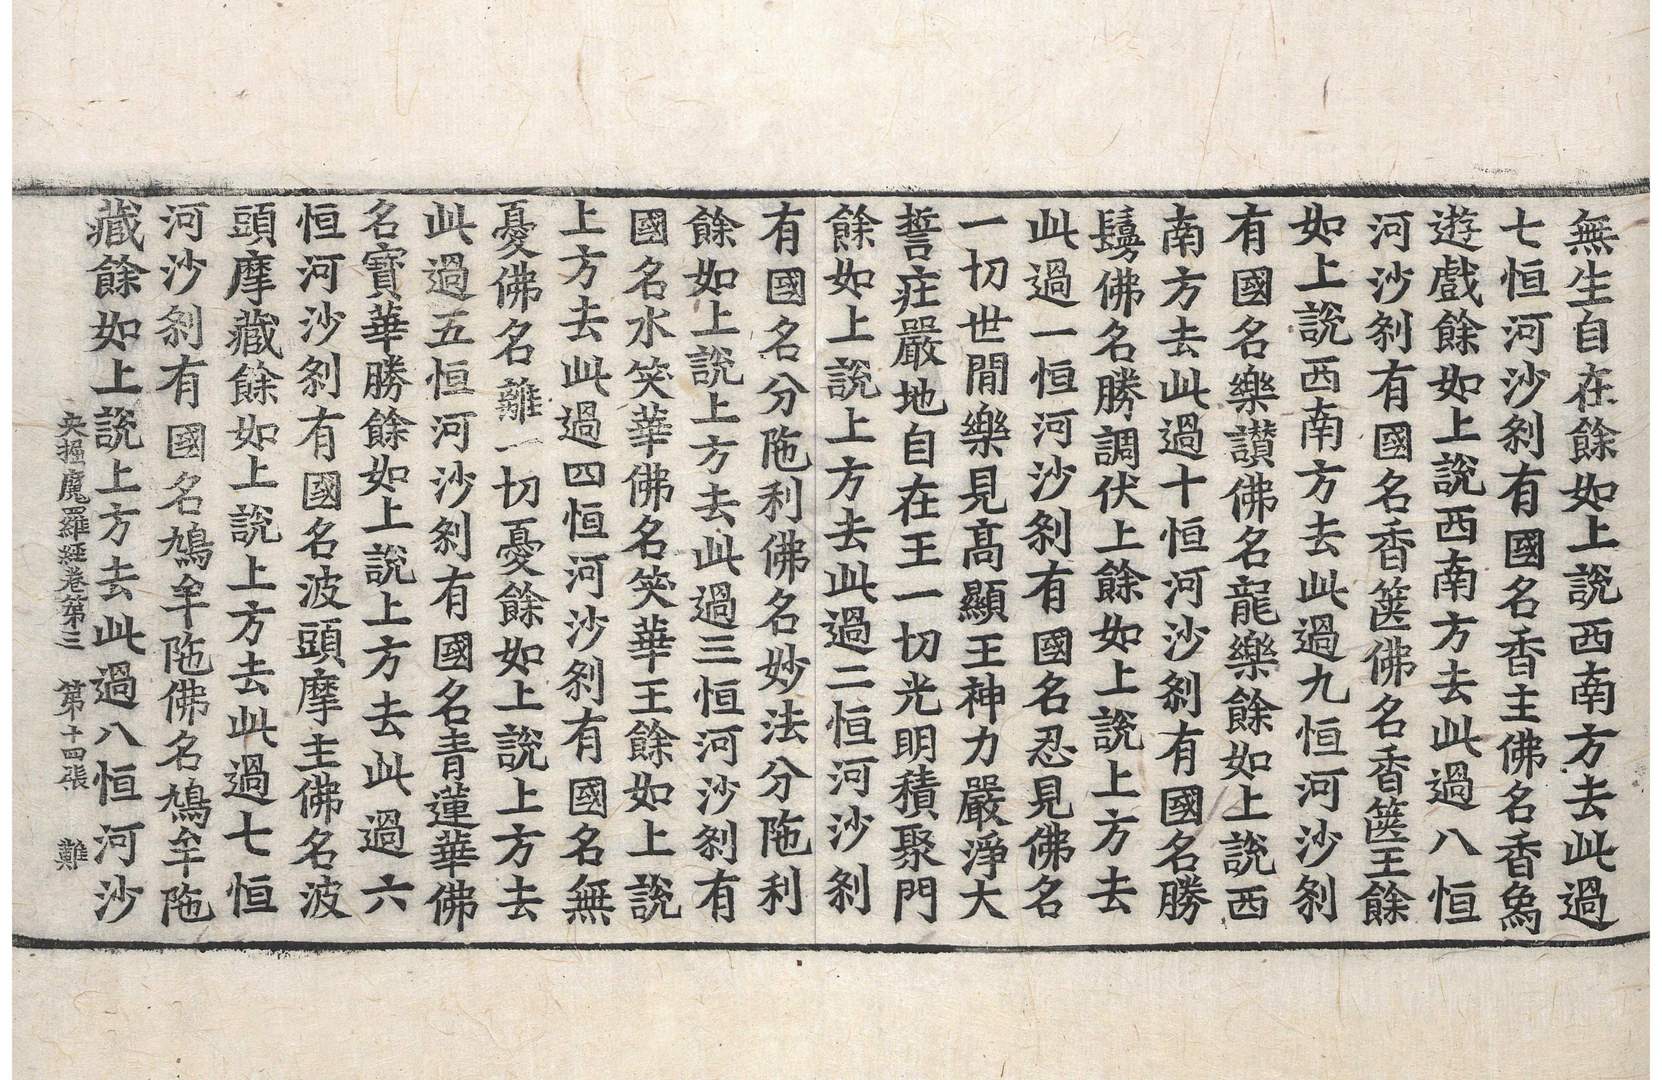 無生自在餘如上說西南方去此過
七恒河沙剎有國名香主佛名香象
遊戲餘如上說西南方去此過八恒
河沙剎有國名香篋佛名香篋王餘
如上說西南方去此過九恒河沙剎
有國名樂讃佛名龍樂餘如上說西
南方去此過十恒河沙剎有國名勝
鬘佛名勝調伏上餘如上說上方去
此過一恒河沙剎有國名忍見佛名
一切世閒樂見高顯王神力嚴淨大
誓莊嚴地自在王一切光明積聚門
餘如上說上方去此過二恒河沙剎
有國名分陁利佛名妙法分陁利
餘如上說上方去此過三恒河沙剎有
國名水笑華佛名笑華王餘如上說
上方去此過四恒河沙剎有國名無
憂佛名離一切憂餘如上說上方去
此過五恒河沙剎有國名青蓮華佛
名寶華勝餘如上說上方去此過六
恒河沙剎有國名波頭摩主佛名波
頭摩藏餘如上說上方去此過七恒
河沙剎有國名鳩牟陁佛名鳩牟陁
藏餘如上說上方去此過八恒河沙
央掘魔羅經卷第三 第十四張 難